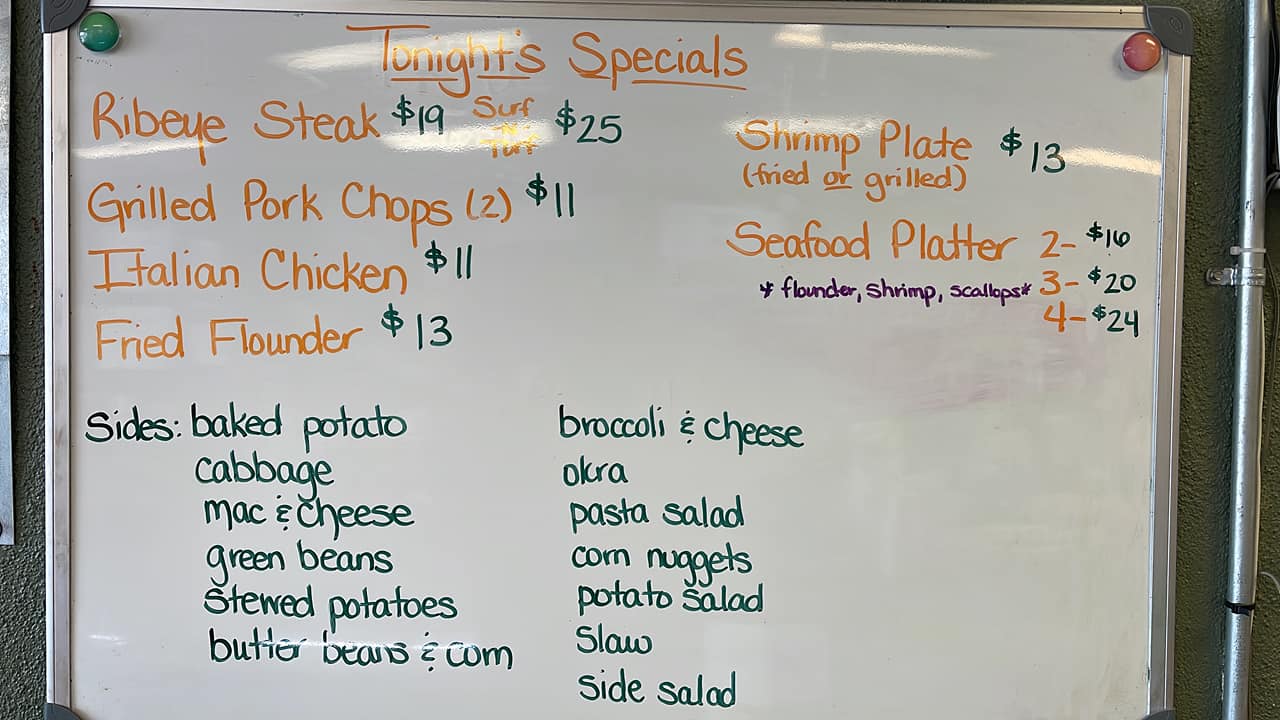 Tonight's Specials
Ribeye Steak $19 Surf 'n Turf $25
Grilled Pork Chops (2) $11
Italian Chicken $11
Fried Flounder $13
Shrimp Plate $13
(fried or grilled)
Seafood Platter 2- $16
*flounder, shrimp, scallops* 3- $20
4- $24
Sides: baked potato
cabbage
mac & cheese
green beans
stewed potatoes
butter beans & corn
broccoli & cheese
okra
pasta salad
corn nuggets
potato salad
Slaw
side salad